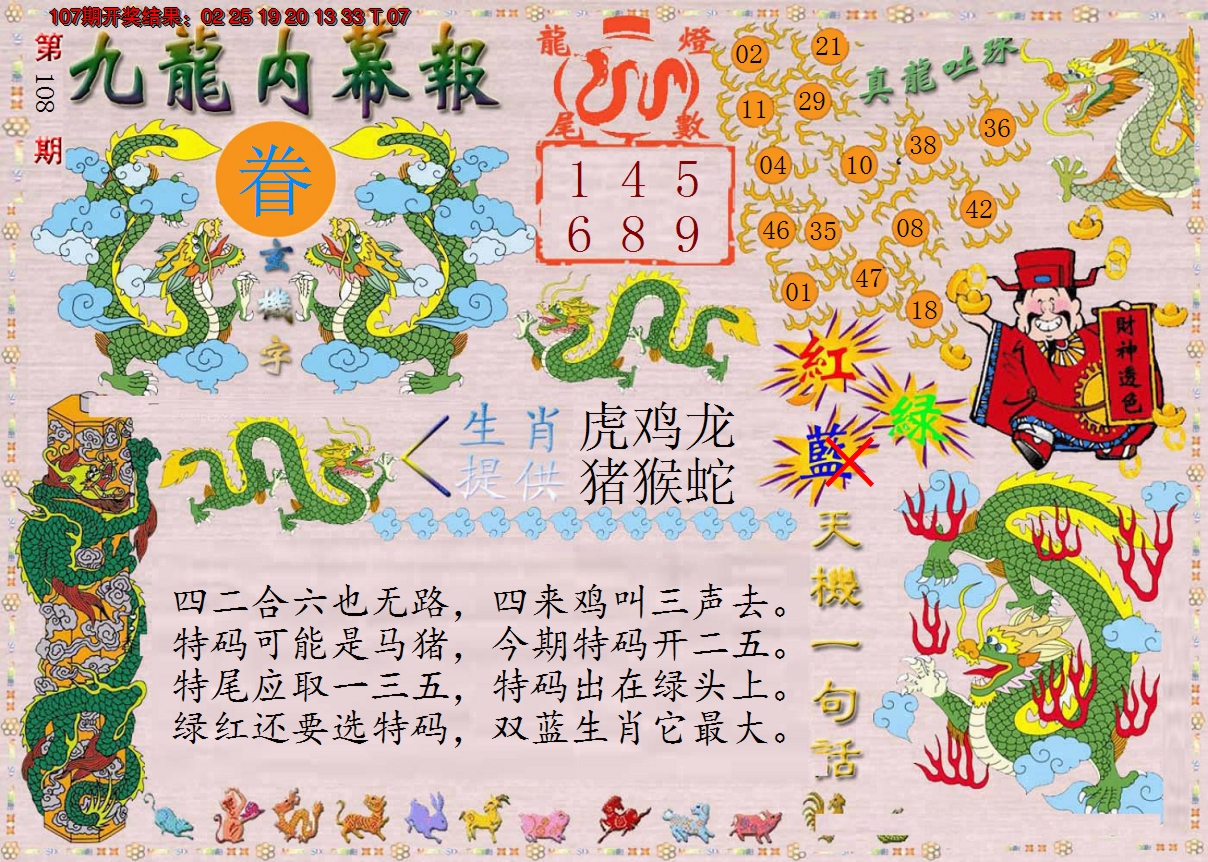 107期开奖结果：02 25 19 20 13 33 T 07
第108期
九龍内幕報
眷
玄機字
龍燈尾數
1 4 5
6 8 9
真龍吐珠
02 21
11 29
04 10 38 36
46 35 08 42
01 47 18
財神透色
紅
綠
藍
生肖提供
虎鸡龙
猪猴蛇
天機一句话
四二合六也无路，四来鸡叫三声去。
特码可能是马猪，今期特码开二五。
特尾应取一三五，特码出在绿头上。
绿红还要选特码，双蓝生肖它最大。